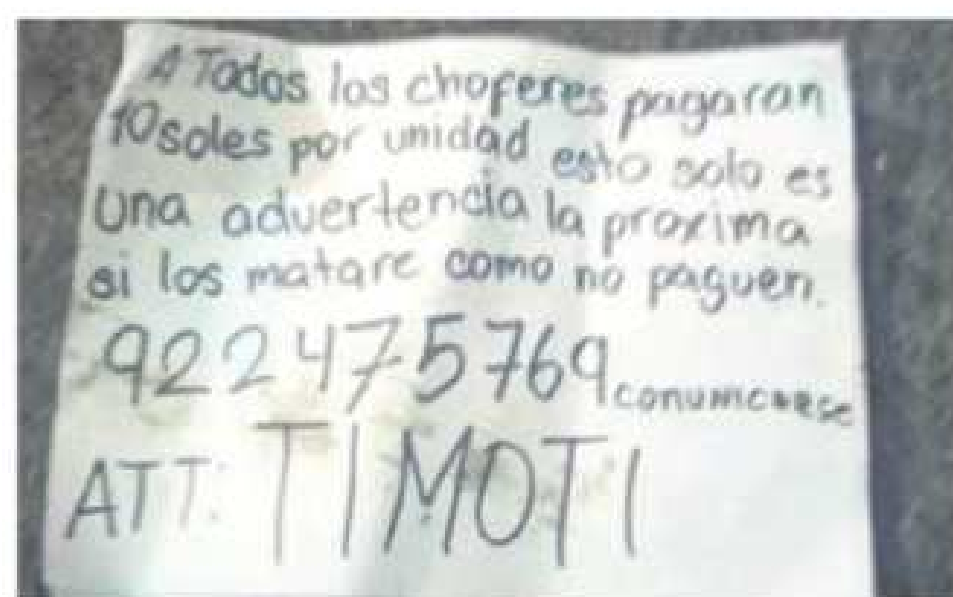 A Todos los choferes pagaran
10 soles por unidad esto solo es
Una advertencia la proxima
si los matare como no paguen.
922475769 conumcarse
ATT: TIMOTI